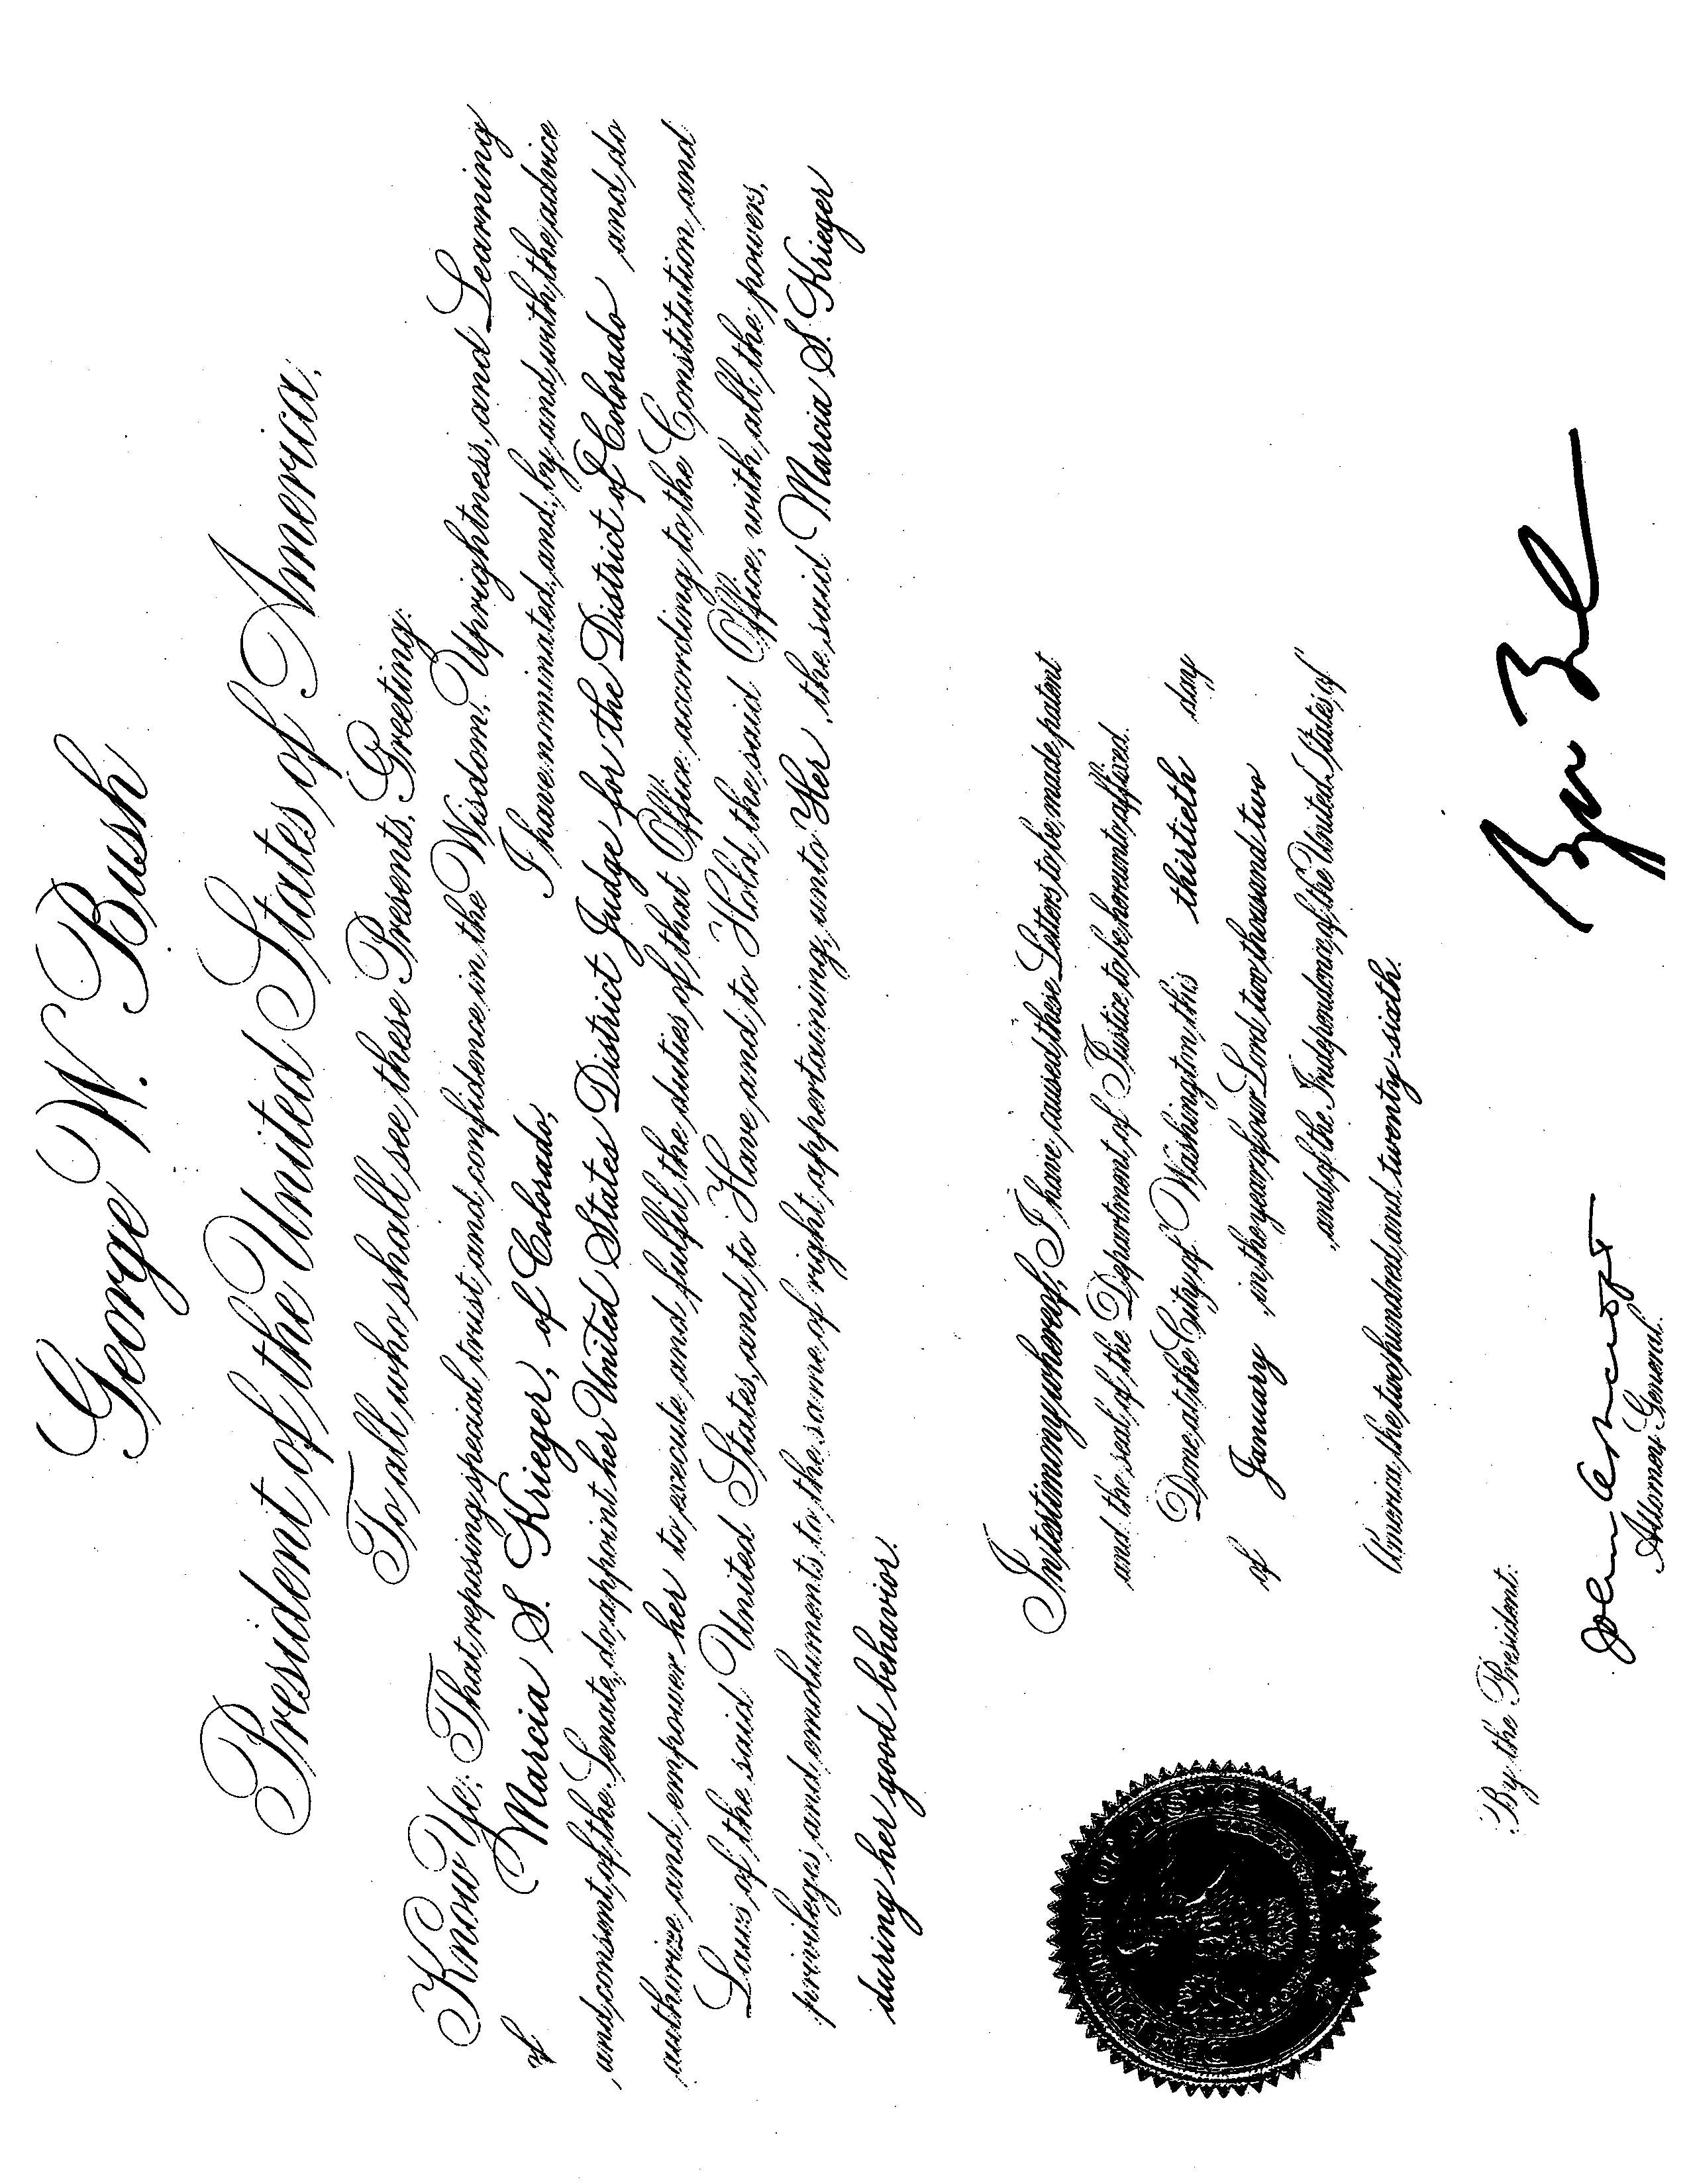 George W. Bush
President of the United States of America.
To all who shall see these Presents, Greeting:
Know Ye; That reposing special trust and confidence in the Wisdom, Uprightness, and Learning
of Marcia S. Krieger, of Colorado, I have nominated, and, by and with the advice
and consent of the Senate, do appoint her United States District Judge for the District of Colorado and do
authorize and empower her to execute and fulfil the duties of that Office according to the Constitution and
Laws of the said United States, and to Have and to Hold the said Office, with all the powers,
privileges and emoluments to the same of right appertaining, unto Her, the said Marcia S. Krieger
during her good behavior.
In testimony whereof, I have caused these Letters to be made patent
and the seal of the Department of Justice to be hereunto affixed.
Done at the City of Washington this thirtieth day
of January, in the year of our Lord two thousand two
and of the Independence of the United States of
America the two hundred and twenty-sixth.
By the President:
John Ashcroft
Attorney General.